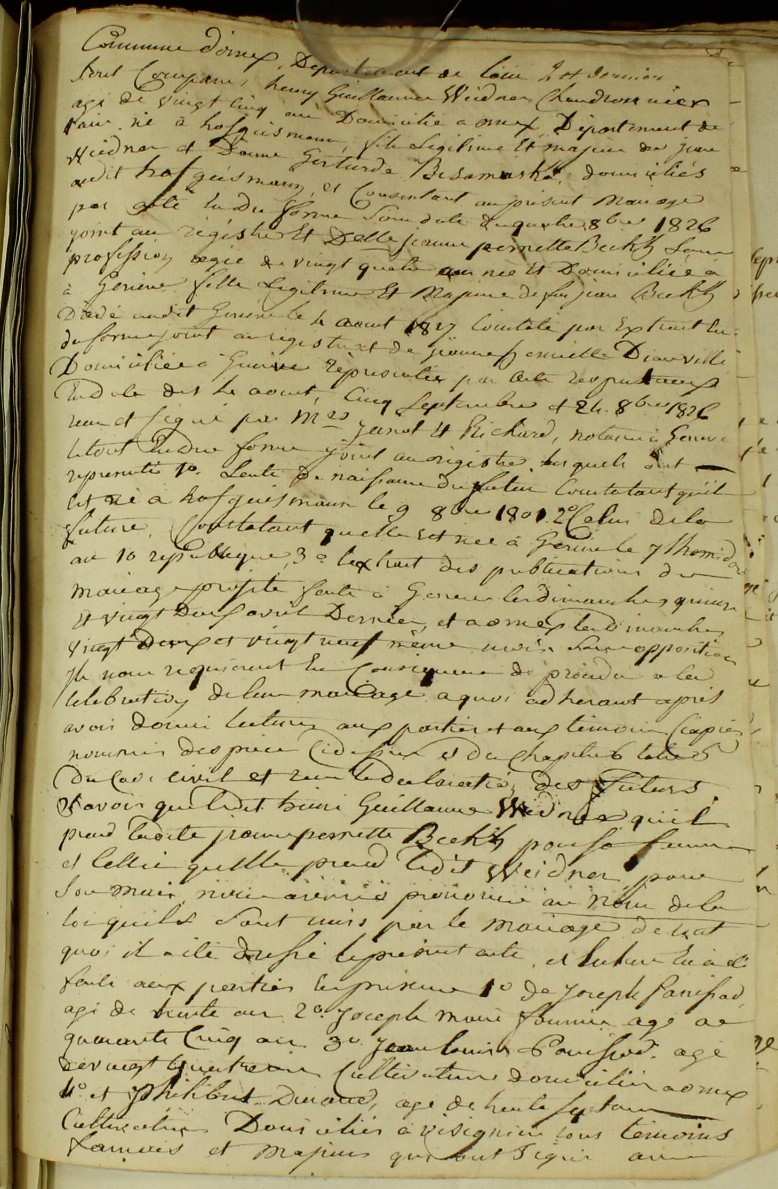 Commune d'ornex, Departement de lain
Sont Comparu, henry Guillaume Weidner Chaudronnier
agé de vingt cinq ans Domicilié a ornex, Département de
lain, né à hofguismaur, fils Legitime Et majeur de
Weidner et Dame Gertrude domiciliés
audit hofguismaur, et Consentant au présent Mariage
par acte En Due forme Sous date du quatre 8bre 1826
joint au registre Et Delle jeanne pernette Beckh Sans
profession agée de vingt quatre ans née Et Domiciliée a
à Genève fille Legitime Et Majeure de feu jean Beckh
Dcédé audit Geneve le août 1817 Constaté par Extrait En
due forme joint au registre et de
Domiciliée a Genève Représentée par acte respectueux
En date des août, Cinq Septembre et 24 8bre 1826
recu et signé par Mes janot Et Richard, notaires à Geneve
le tout En due forme joint au registre, lesquels ont
représenté 1o. Lacte De naissance du futur Constatant qu'il
Est né a hofguismaur le 9 8bre 1801. 2o Celui de la
future, Constatant quelle Est née à Genève le 7 thermidor
an 10 republique, 3o lextrait des publications du
mariage projeté faite à Geneve les dimanches quinze
Et vingt Deux avril Dernier, et a ornex les Dimanches
vingt Deux et vingt neuf même mois Sans opposition
Ils nous requierent En Conséquence de procéder a la
Celebration de leur mariage a quoi adherant après
avoir donné lecture aux parties et aux témoins Ci après
nommés des pieces Cidessus et du Chapitre 6 titre 5
Du Code civil et recu la declaration des Futurs.
Savoir que Ledit henri Guillaume Weidner qu'il
prend Ladite jeanne pernette Beckh pour sa femme
et Celleci quelle prend Ledit Weidner, pour
Son mari, nous avons prononcé au Nom de la
loi quils sont unis par le mariage de tout
quoi il a été dressé le présent acte, et lecture En a été
faite aux parties En présence 1o de joseph
agé de trente ans 2o. joseph marie fournier agé de
quarante Cinq ans 3o. jean louis agé
de vingt quatre ans Cultivateurs domiciliés a ornex
4o. et Philibert Durand, agé de trente sept ans
Cultivateur Domiciliés à tous témoins
francais et majeurs qui ont signé avec